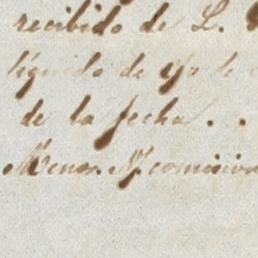 recibido de L.
líquido de
de la fecha . .
Menos M. comision